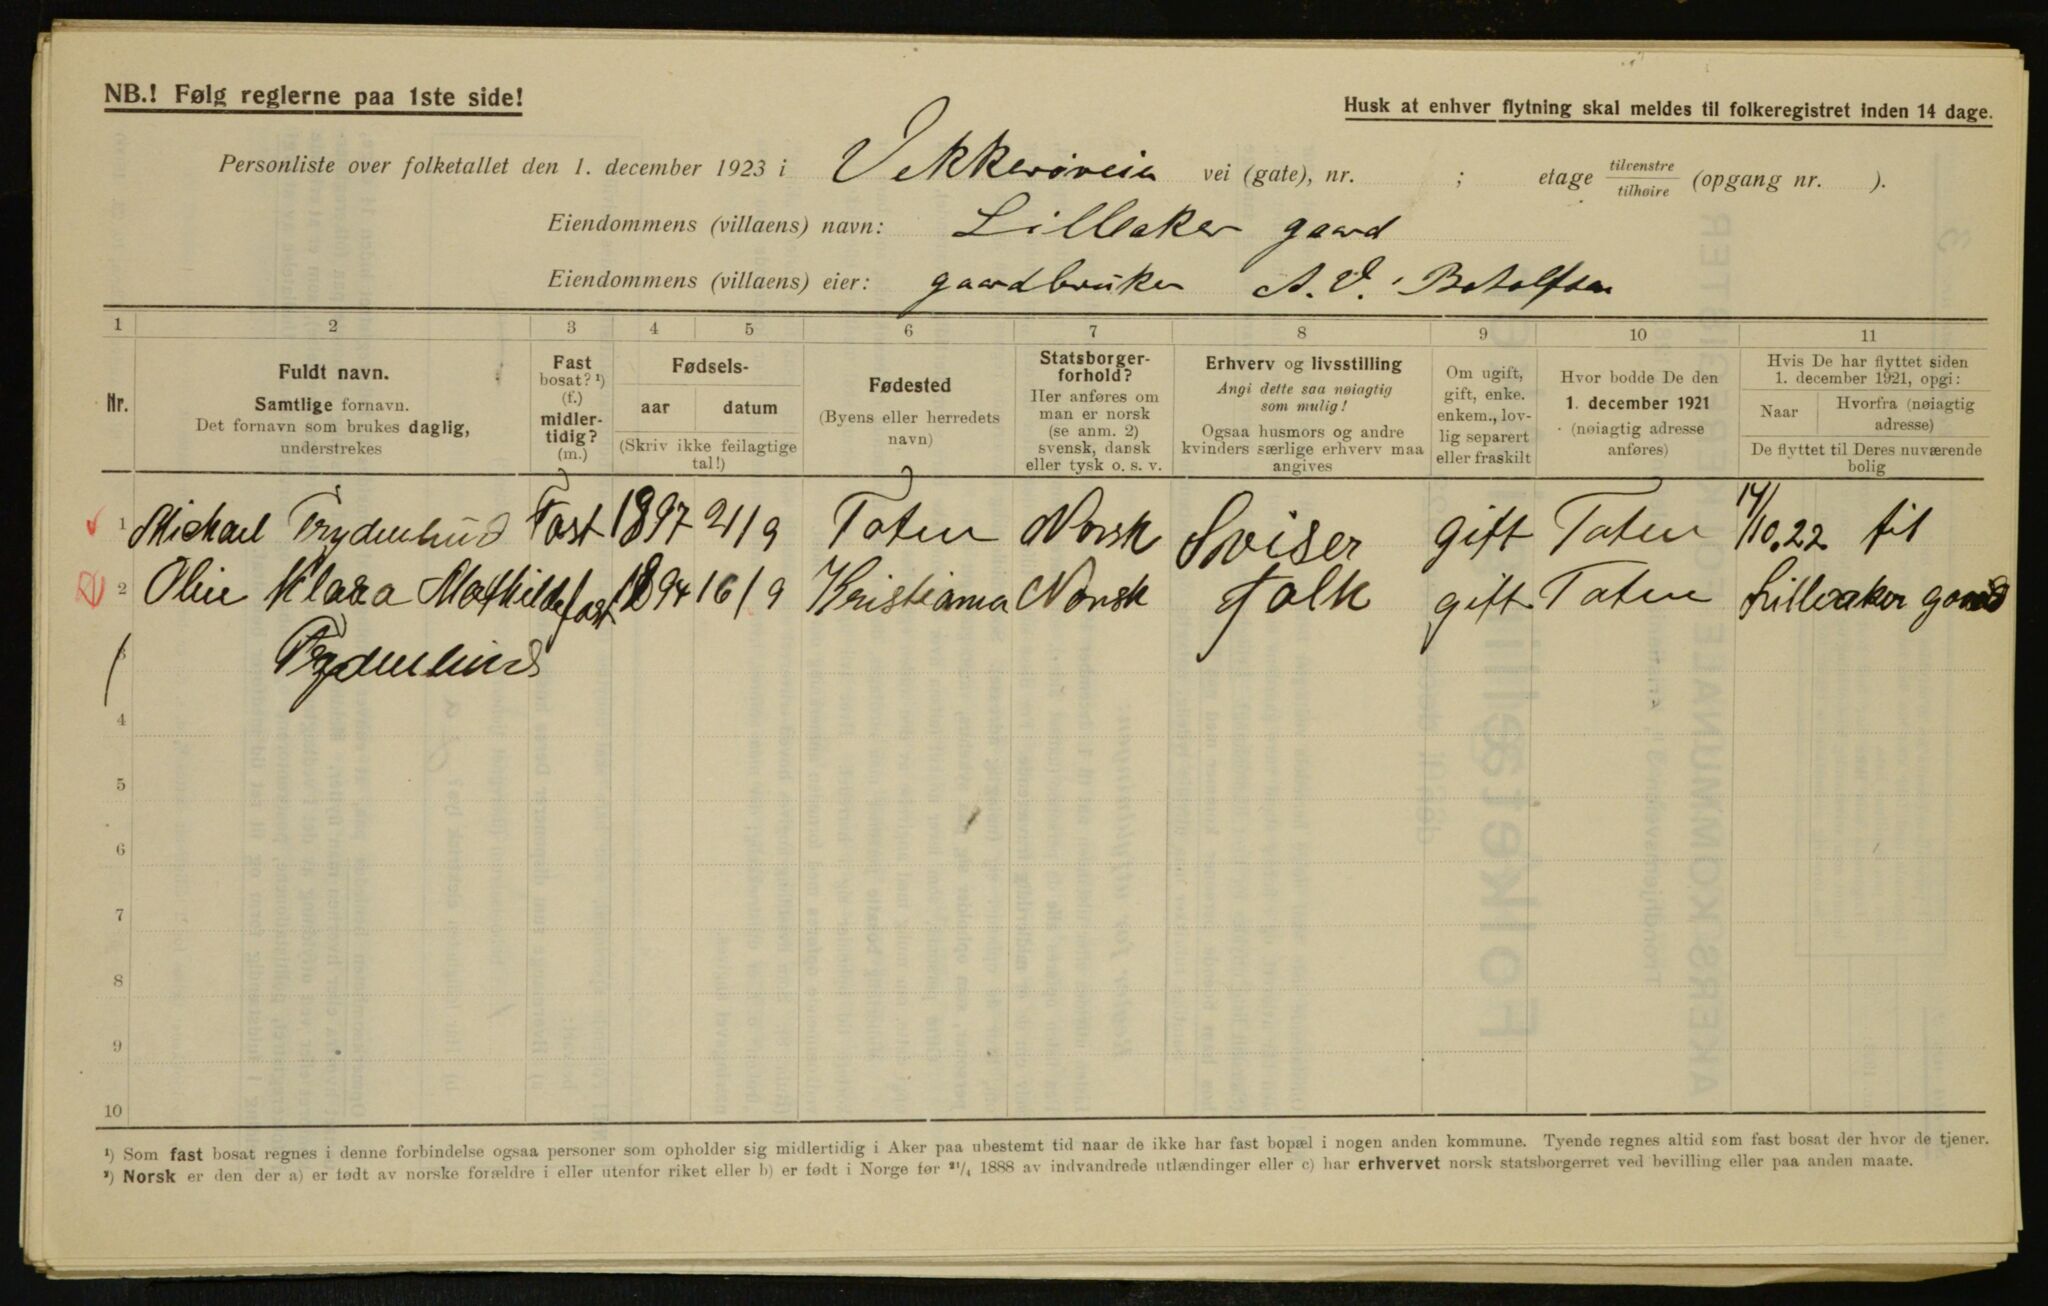 NB.! Følg reglerne paa 1ste side!
Husk at enhver flytning skal meldes til folkeregistret inden 14 dage.
Personliste over folketallet den 1. december 1923 i Vekkerøveien vei (gate), nr. ; etage tilvenstre / tilhøire (opgang nr. ).
Eiendommens (villaens) navn: Lilleaker gaard
Eiendommens (villaens) eier: gaardbruker A. V. Botolfsen
1 2 3 4 5 6 7 8 9 10 11
Nr.
Fuldt navn.
Samtlige fornavn.
Det fornavn som brukes daglig,
understrekes
Fast
bosat? ¹)
(f.)
midler-
tidig?
(m.)
Fødsels-
aar datum
(Skriv ikke feilagtige
tal!)
Fødested
(Byens eller herredets
navn)
Statsborger-
forhold?
Her anføres om
man er norsk
(se anm. 2)
svensk, dansk
eller tysk o. s. v.
Erhverv og livsstilling
Angi dette saa nøiagtig
som mulig!
Ogsaa husmors og andre
kvinders særlige erhverv maa
angives
Om ugift,
gift, enke.
enkem., lov-
lig separert
eller fraskilt
Hvor bodde De den
1. december 1921
(nøiagtig adresse
anføres)
Hvis De har flyttet siden
1. december 1921, opgi:
Naar Hvorfra (nøiagtig
adresse)
De flyttet til Deres nuværende
bolig
1 Michael Trydenlund Fast 1897 21/9 Toten Norsk Sviser gift Toten 17/10.22 til
2 Oline Klara Mathilde fast 1894 16/9 Kristiania Norsk gift Toten Lilleaker gaard
3 Trydenlund
4
5
6
7
8
9
10
¹) Som fast bosat regnes i denne forbindelse ogsaa personer som opholder sig midlertidig i Aker paa ubestemt tid naar de ikke har fast bopæl i nogen anden kommune. Tyende regnes altid som fast bosat der hvor de tjener.
²) Norsk er den der a) er født av norske forældre i eller utenfor riket eller b) er født i Norge før ²¹/₄ 1888 av indvandrede utlændinger eller c) har erhvervet norsk statsborgerret ved bevilling eller paa anden maate.